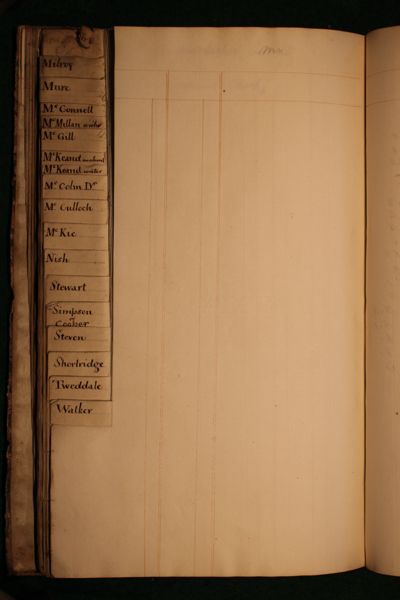 Milroy
Mure
Mc Connell
Mc Millan
Mc Gill
Mc Keand
Mc Keand
Mc Colm Dr
Mc Culloch
Mc Kie
Nish
Stewart
Simpson
Cooper
Steven
Shortridge
Tweddale
Walker